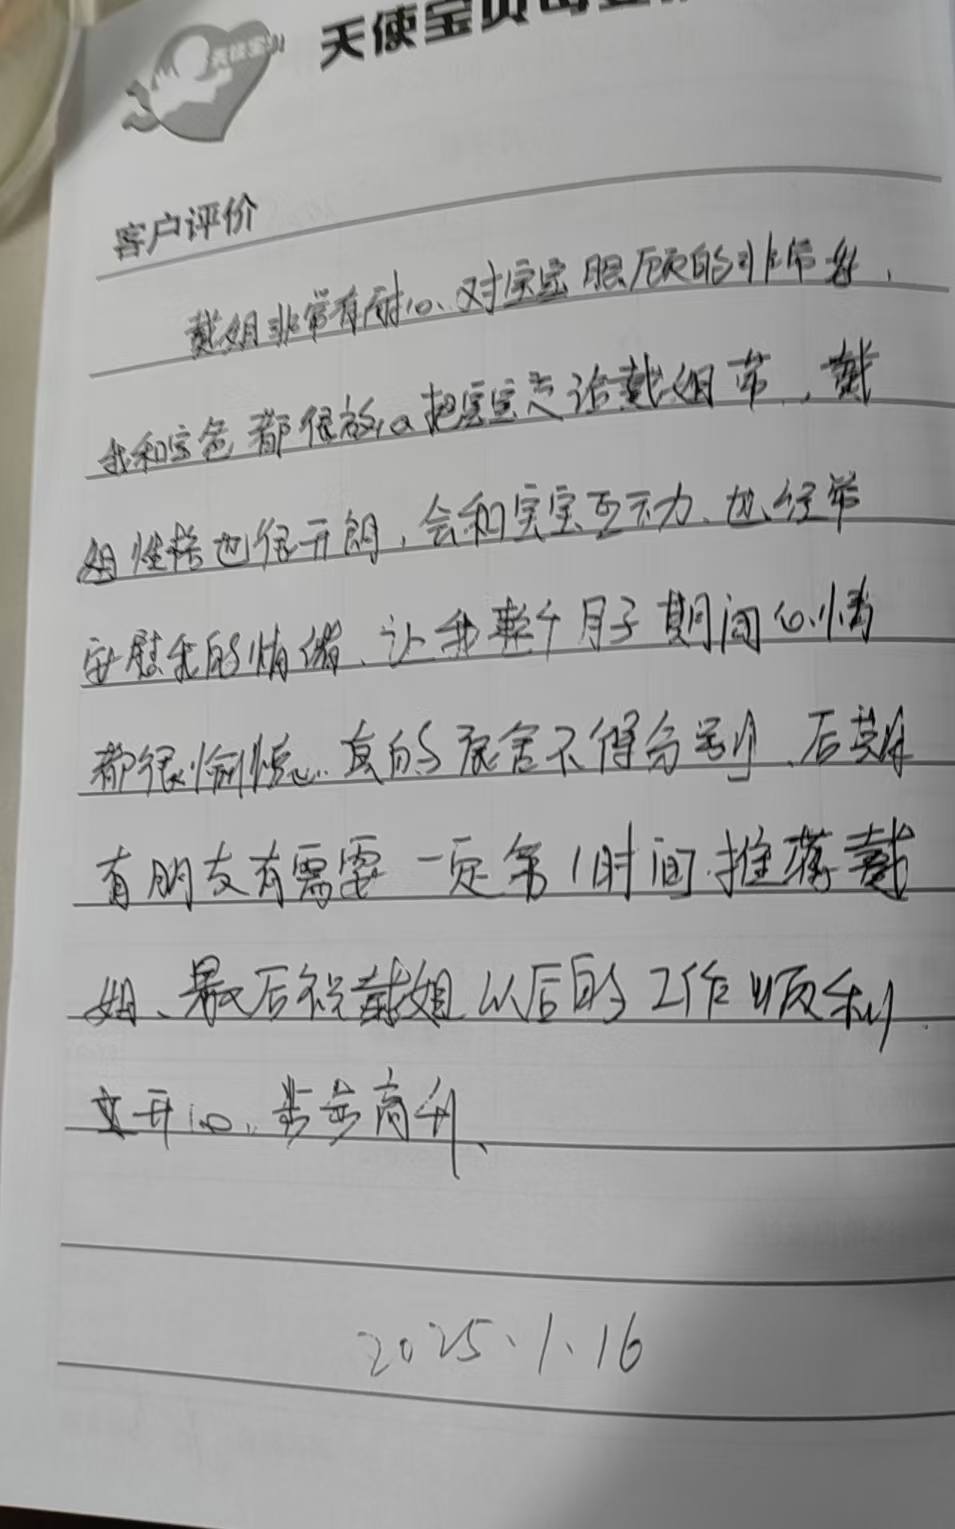 天使宝贝母婴
天使宝贝
客户评价
戴姐非常有耐心、对宝宝照顾的非常好,
我和宝爸都很放心把宝宝交给戴姐带,戴
姐性格也很开朗,会和宝宝互动、也经常
安慰我的情绪、让我整个月子期间心情
都很愉悦、真的很舍不得分别、后期
有朋友有需要一定第1时间推荐戴
姐、最后祝戴姐以后的工作顺利
开心、步步高升、
2025、1、16